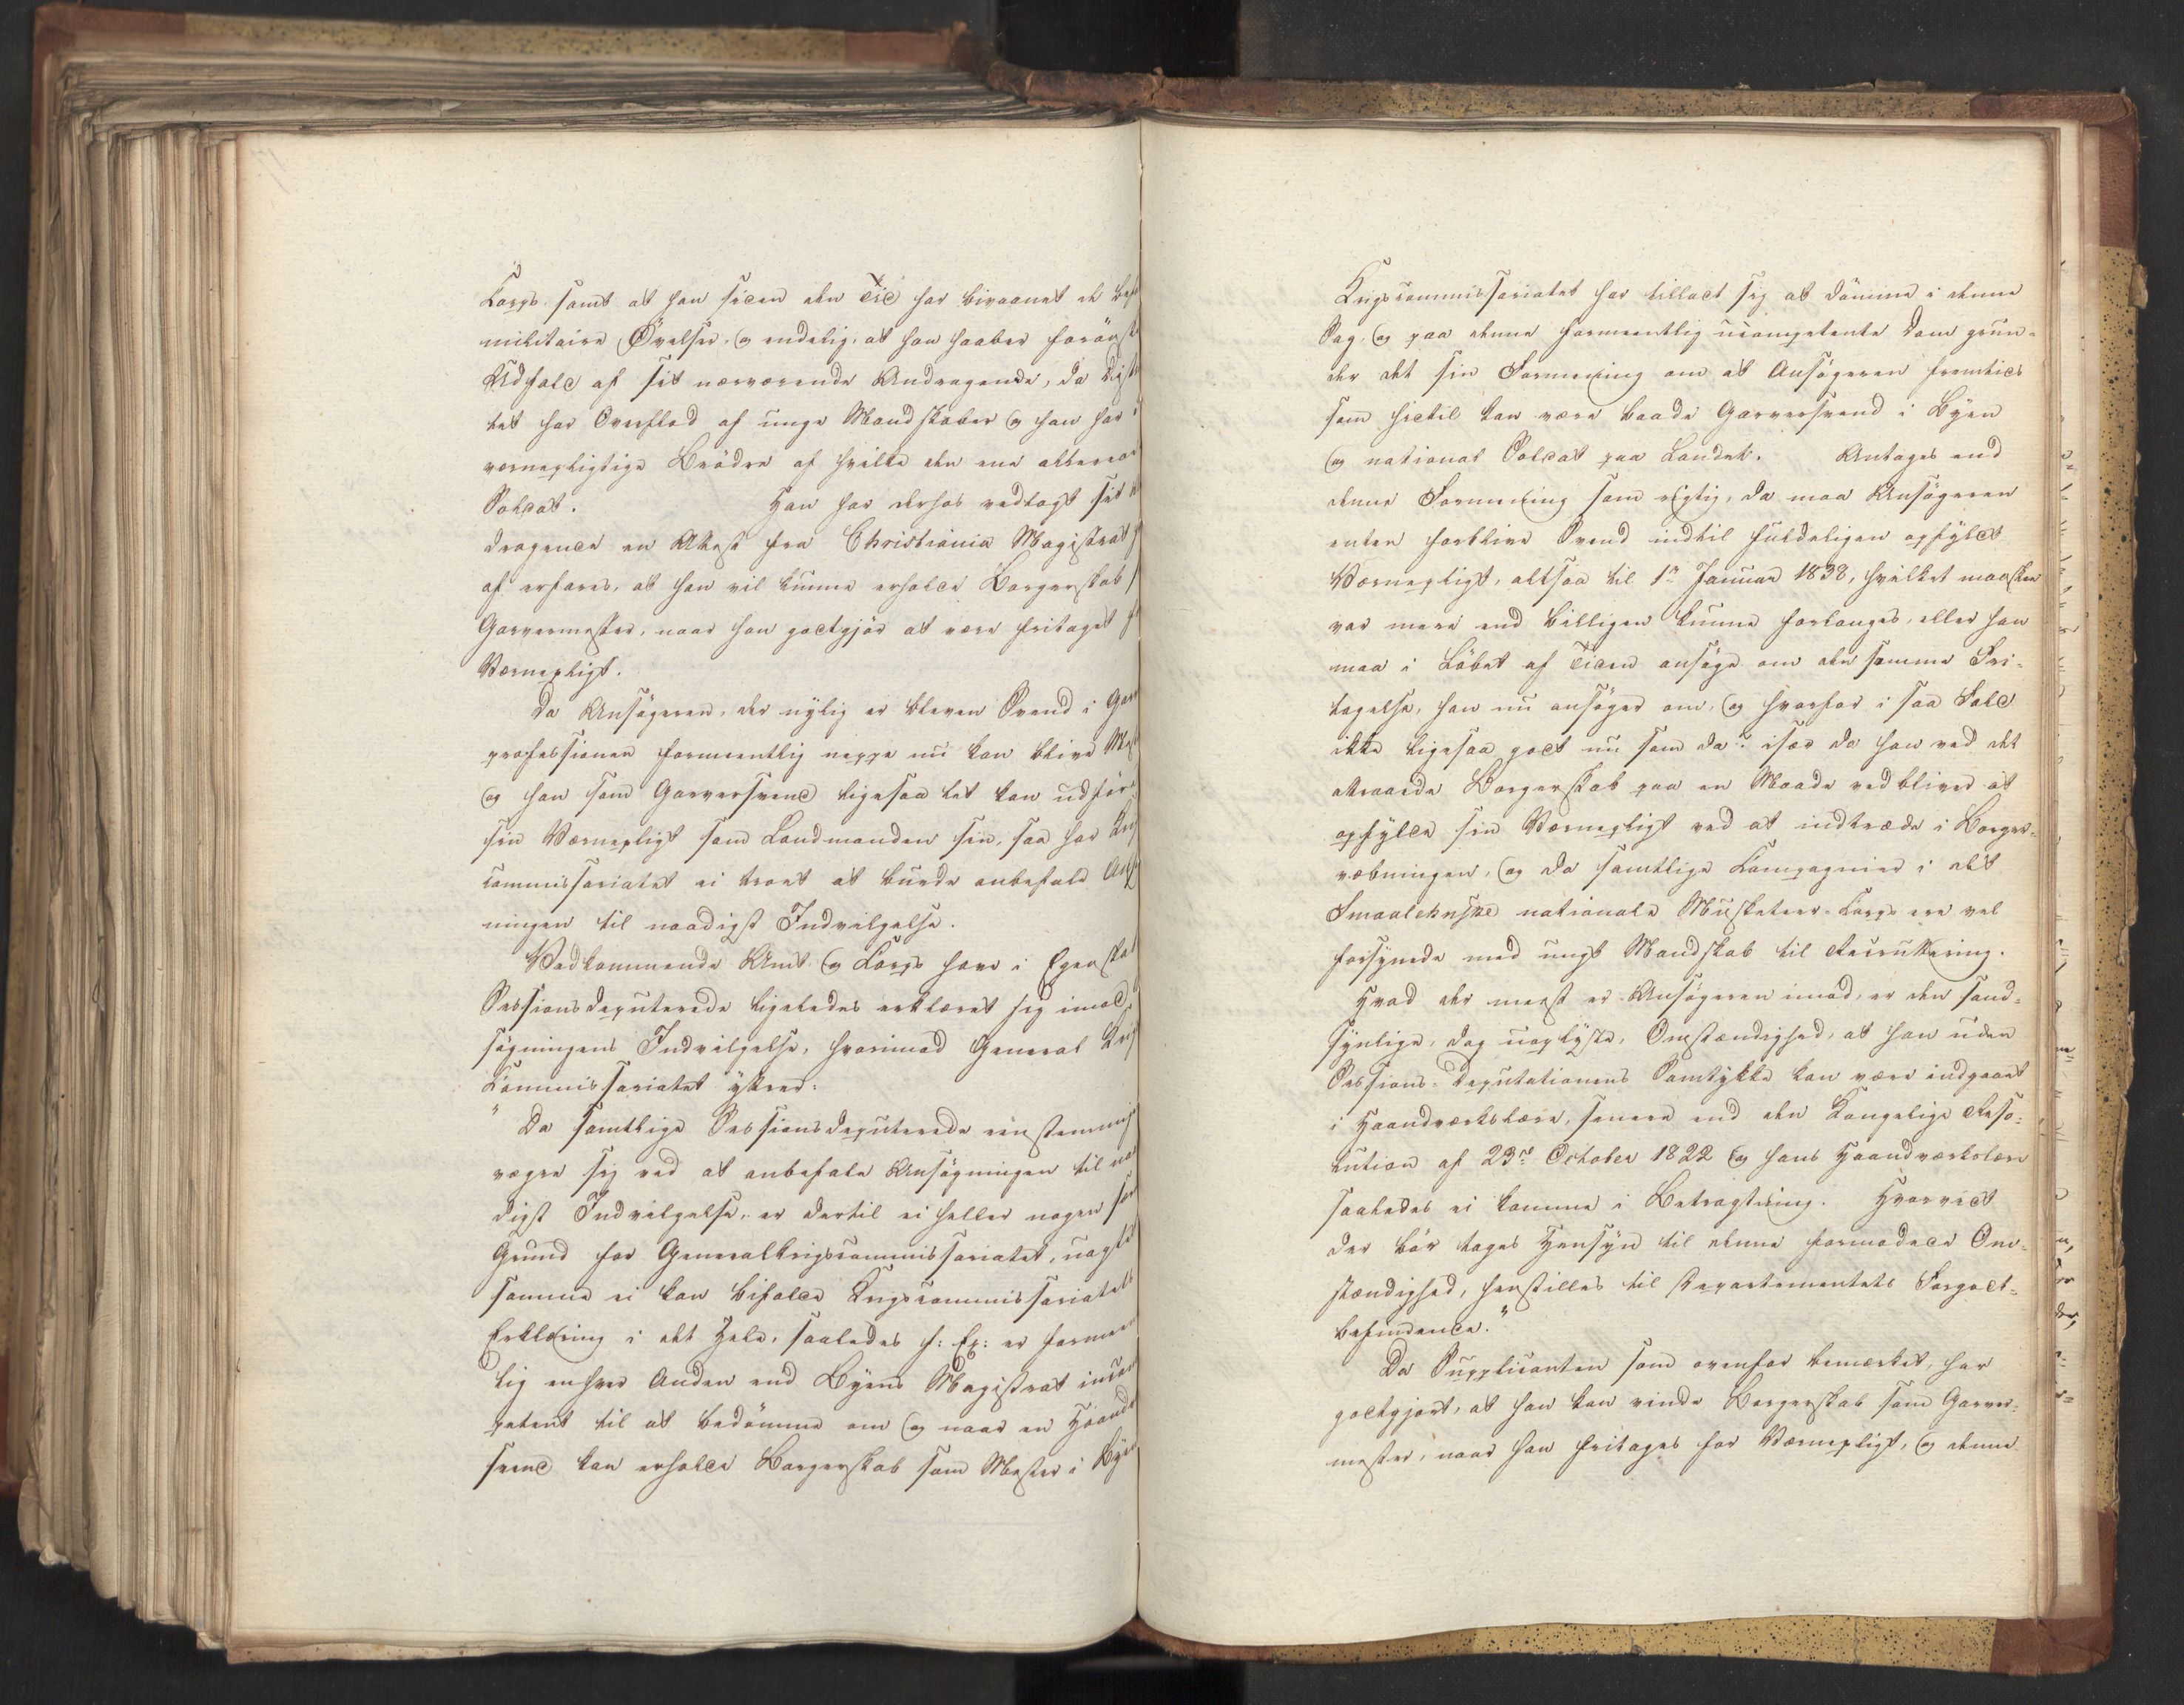 Corps samt at han siden den Tid har bivaanet de
militaire Øvelser, og endelig, at han haaber forønsket
Udfald af sit nærværende Andragende, da Distri
tet har Overflod af unge Mandskaber og han har
værnepligtige Brödre af hvilke den ene allerede
Soldat. Han har derhos vedlagt sit
dragende en Attest fra Christiania Magistrat
af erfares, at han vil kunne erholde Borgerskab
Garvermester, naar han godtgjör at være fritaget
Værnepligt.
Da Ansögeren, der nylig er bleven Svend i Gar
professionen formeentlig neppe nu kan blive
og han som Garversvend ligesaa let kan udföre
sin Værnepligt som Landmanden sin, saa har
commissariatet ei troet at burde anbefale
ningen til naadigst Indvilgelse.
Vedkommende Amt og Corps have i Egenskab
Sessionsdeputerede ligeledes erklæret sig imod
søgningens Indvilgelse, hvorimod General
Commissariatet yttrer:
"Da samtlige Sessionsdeputerede eenstemmig
vægre sig ved at anbefale Ansögningen til naa
digst Indvilgelse, er dertil ei heller nogen
Grund for Generalkrigscommissariatet, uagtet
samme ei kan bifalde Krigscommissariatets
Erklæring i det Hele, saaledes f: Ex: er formeent
lig enhver Anden end Byens Magistrat incom
petent til at bedömme om og naar en Haandv
svend kan erholde Borgerskab som Mester i Byen
Krigscommissariatet har tilladt sig at dömme i denne
Sag, og paa denne formeentlig incompetente Dom grun-
der det sin Formening om at Ansögeren fremtids
som hidtil kan være baade Garversvend i Byen
og national Soldat paa Landet. Antages end
denne Formening som rigtig, da maa Ansögeren
enten forblive Svend indtil fuldeligen opfyldt
Værnepligt, altsaa til 1n Januar 1838, hvilket maaskee
var mere end billigen kunne forlanges, eller han
maa i Löbet af Tiden ansöge om den samme Fri-
tagelse, han nu ansöger om, og hvorfor i saa Fald
ikke ligesaa godt nu som da? især da han ved det
attraaede Borgerskab paa en Maade vedbliver at
opfylde sin Værnepligt ved at indtræde i Borger-
væbningen, og da samtlige Compagnier i det
Smaalehnske nationale Musketeer-Corps ere vel
forsynede med ungt Mandskab til Recruttering.
Hvad der meest er Ansögeren imod, er den sand-
synlige, dog uoplyste, Omstændighed, at han uden
Sessions-Deputationens Samtykke kan være indgaaet
i Haandværkslære, senere end den Kongelige Reso-
lution af 23de October 1822 og hans Haandværkslære
saaledes ei komme i Betragtning. Hvorvidt
der bör tages Hensyn til denne formodede Om-
stændighed, henstilles til Departementets Forgodt-
befindende."
Da Supplicanten som ovenfor bemærket, har
godtgjort, at han kan vinde Borgerskab som Garver-
mester, naar han fritages for Værnepligt, og denne